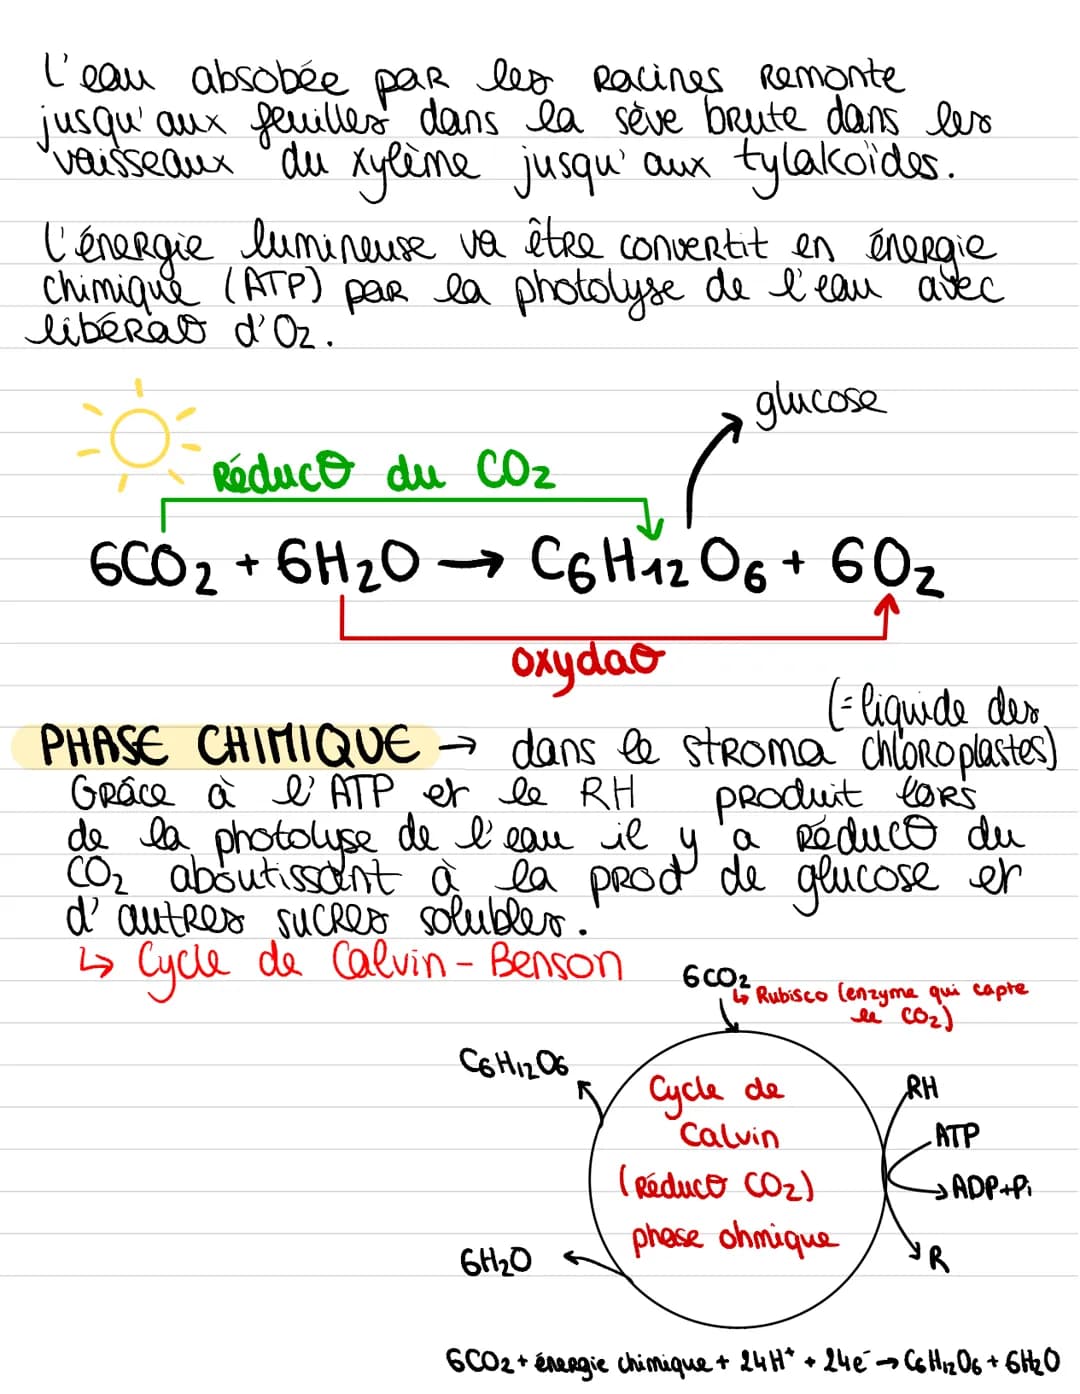 L'eau absobée par les racines remonte
jusqu'aux feuilles dans la sève brute dans les
vaisseaux du xylème jusqu'aux tylakoïdes.
L'énergie lumineuse va être convertit en énergie
chimique (ATP) par la photolyse de l'eau avec
libérat° d'O2.
glucose
Réduct° du CO2
6CO2 + 6H2O → C6H12O6 + 6O2
oxydat°
(= liquide des
PHASE CHIMIQUE → dans le stroma chloroplastes)
Grâce à l'ATP et le RH produit lors
de la photolyse de l'eau il y a réduct° du
CO2 aboutissant à la prod° de glucose et
d'autres sucres solubles.
↳ Cycle de Calvin-Benson
6CO2
↳ Rubisco (enzyme qui capte
le CO2)
C6H12O6
Cycle de
Calvin
(Réduct° CO2)
phase ohmique
RH
ATP
→ ADP+Pi
R
6H2O
6CO2 + énergie chimique + 24H⁺ + 24e⁻ → C6H12O6 + 6H2O